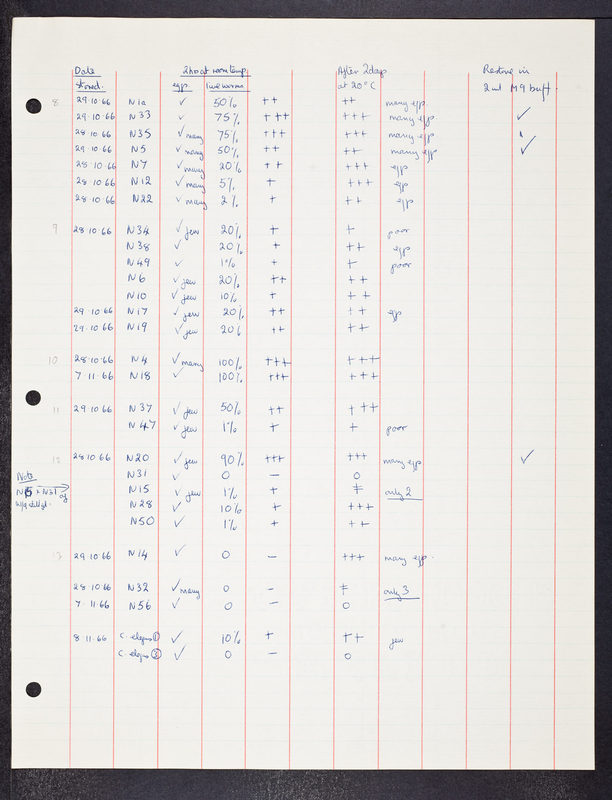 Date 2hrs at room temp. After 2 days Restore in
stored. eggs live worms at 20°C 2ml M9 buff.
8 29.10.66 N1a ✓ 50% ++ ++ many eggs
29.10.66 N33 ✓ 75% +++ +++ many eggs ✓
28.10.66 N35 ✓ many 75% +++ +++ many eggs
29.10.66 N5 ✓ many 50% ++ ++ many eggs ✓
28.10.66 N7 ✓ many 20% ++ +++ eggs
28.10.66 N12 ✓ many 5% + +++ eggs
28.10.66 N22 ✓ many 2% + ++ eggs
9 28.10.66 N34 ✓ few 20% + + poor
N38 ✓ 20% + ++ eggs
N49 ✓ 1% + + poor
N6 ✓ few 20% ++ ++
N10 ✓ few 10% + ++
29.10.66 N17 ✓ few 20% ++ ++ eggs
29.10.66 N19 ✓ few 20% ++ ++
10 28.10.66 N4 ✓ many 100% +++ +++
7.11.66 N18 ✓ 100% +++ +++
11 29.10.66 N37 ✓ few 50% ++ +++
N47 ✓ few 1% + + poor
12 28.10.66 N20 ✓ few 90% +++ +++ many eggs ✓
Note N31 ✓ 0 – 0
N15 + N31 of N15 ✓ few 1% + ‡ only 2
N28 ✓ 10% + +++
N50 ✓ 1% + ++
13 29.10.66 N14 ✓ 0 – +++ many eggs.
28.10.66 N32 ✓ many 0 – ‡ only 3
7.11.66 N56 ✓ 0 – 0
8.11.66 C. elegans ① ✓ 10% + ++ few
C. elegans ② ✓ 0 – 0